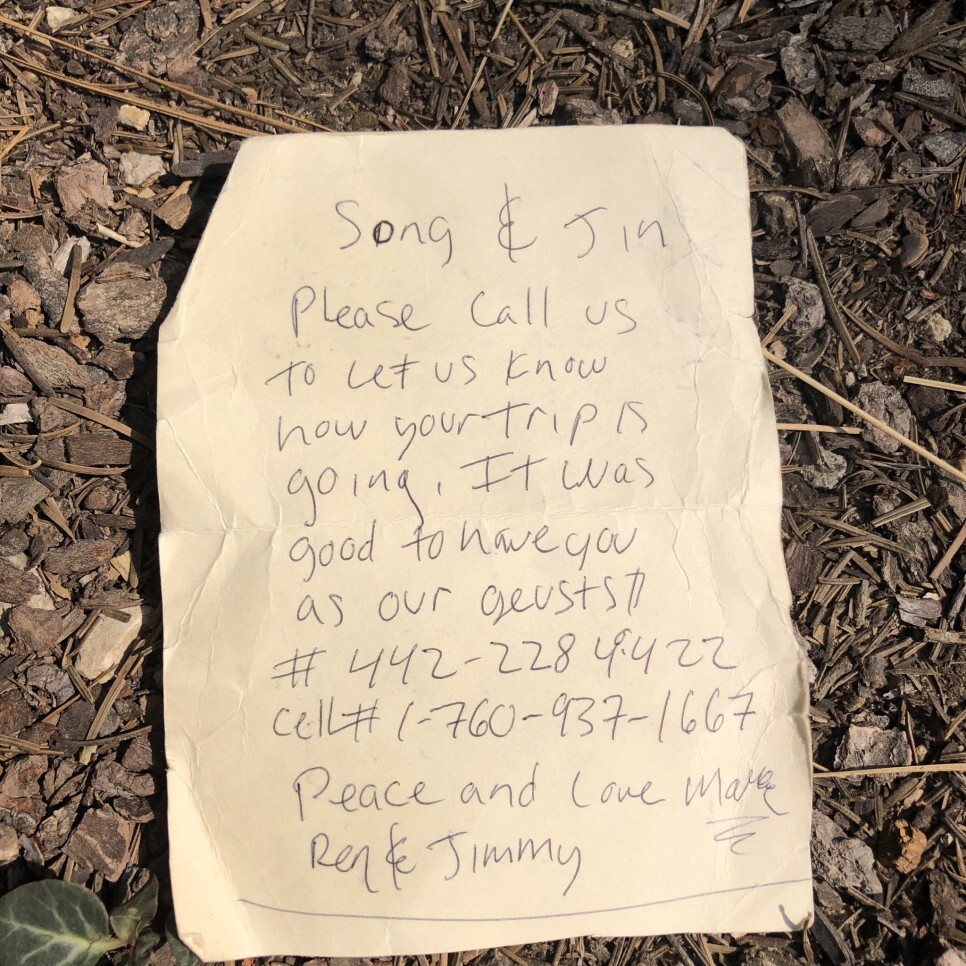 Song & Jin
Please Call us
to Let us know
how your trip is
going. It was
good to have you
as our geusts!!
# 442-228 9422
cell# 1-760-937-1667
Peace and Love
Ren & Jimmy